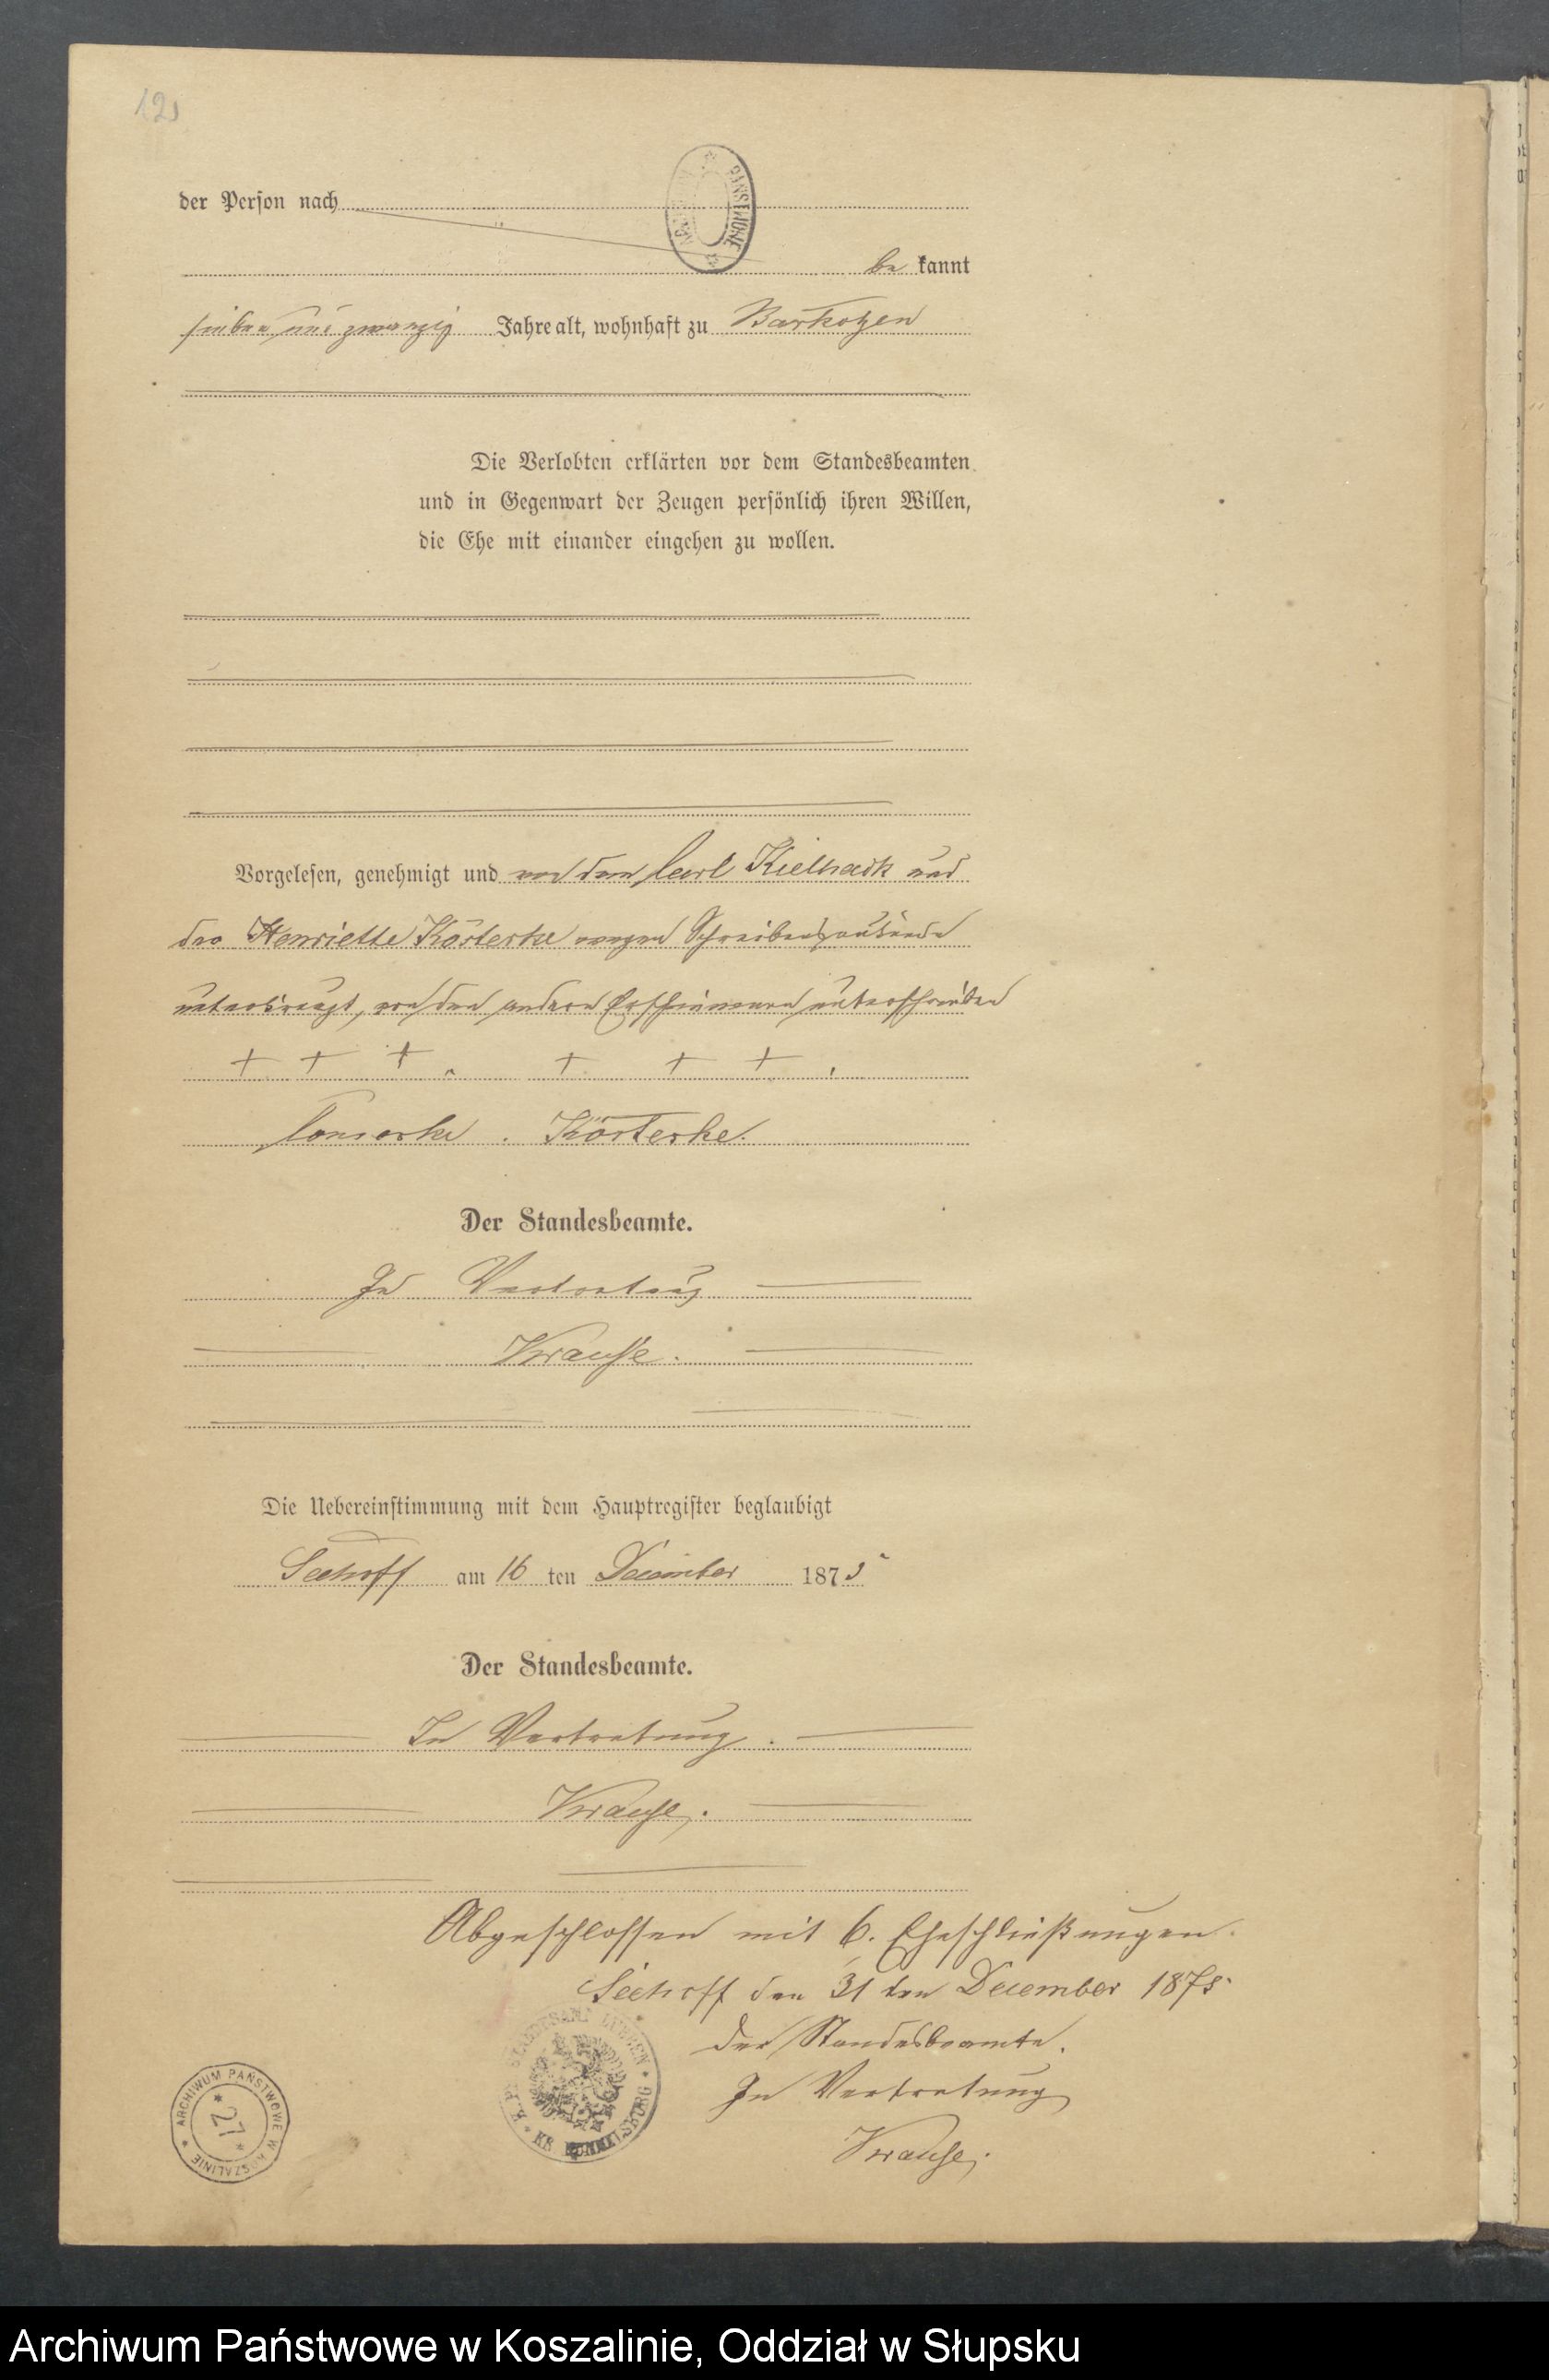 121
der Person nach
be kannt
sieben und zwanzig Jahre alt, wohnhaft zu Barkotzen
Die Verlobten erklärten vor dem Standesbeamten
und in Gegenwart der Zeugen persönlich ihren Willen,
die Ehe mit einander eingehen zu wollen.
Vorgelesen, genehmigt und von dem Carl Kielhack und
der Henriette Körterke wegen Schreibensunkunde
unterkreuzt, von den andern Erschienenen unterschrieben
+ + + . + + + .
Körterke.
Der Standesbeamte.
In Vertretung
Krause.
Die Uebereinstimmung mit dem Hauptregister beglaubigt
Seehoff am 16 ten December 1875
Der Standesbeamte.
In Vertretung.
Krause.
Abgeschlossen mit 6. Eheschließungen.
Seehoff den 31 ten December 1875
Der Standesbeamte.
In Vertretung
Krause.
ARCHIWUM PAŃSTWOWE W KOSZALINIE
*27*
Archiwum Państwowe w Koszalinie, Oddział w Słupsku